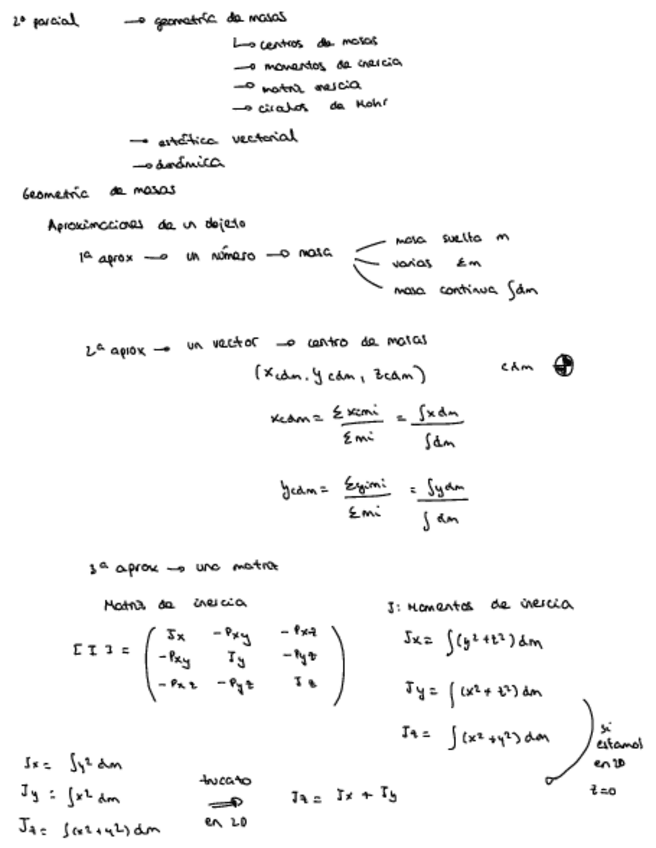 2º parcial → geometría de masas
↳ centros de masas
→ momentos de inercia
→ matriz inercia
→ círculos de Mohr
→ estática vectorial
→ dinámica
Geometría de masas
Aproximaciones de un objeto
1ª aprox → un número → masa
masa suelta m
varias Σm
masa continua ∫dm
2ª aprox → un vector → centro de masas
(xcdm, ycdm, zcdm) cdm
xcdm = Σximi / Σmi = ∫xdm / ∫dm
ycdm = Σyimi / Σmi = ∫ydm / ∫dm
3ª aprox → una matriz
Matriz de inercia
[I] = ( Jx -Pxy -Pxz
-Pxy Jy -Pyz
-Pxz -Pyz Jz )
J: Momentos de inercia
Jx = ∫(y²+z²)dm
Jy = ∫(x²+z²)dm
Jz = ∫(x²+y²)dm
si estamos en 2D z=0
Jx = ∫y² dm
Jy = ∫x² dm
Jz = ∫(x²+y²)dm
trucato ⇒ en 2D
Jz = Jx + Jy